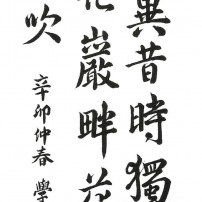 異昔時獨
花巖畔花
吹
辛卯仲春 學